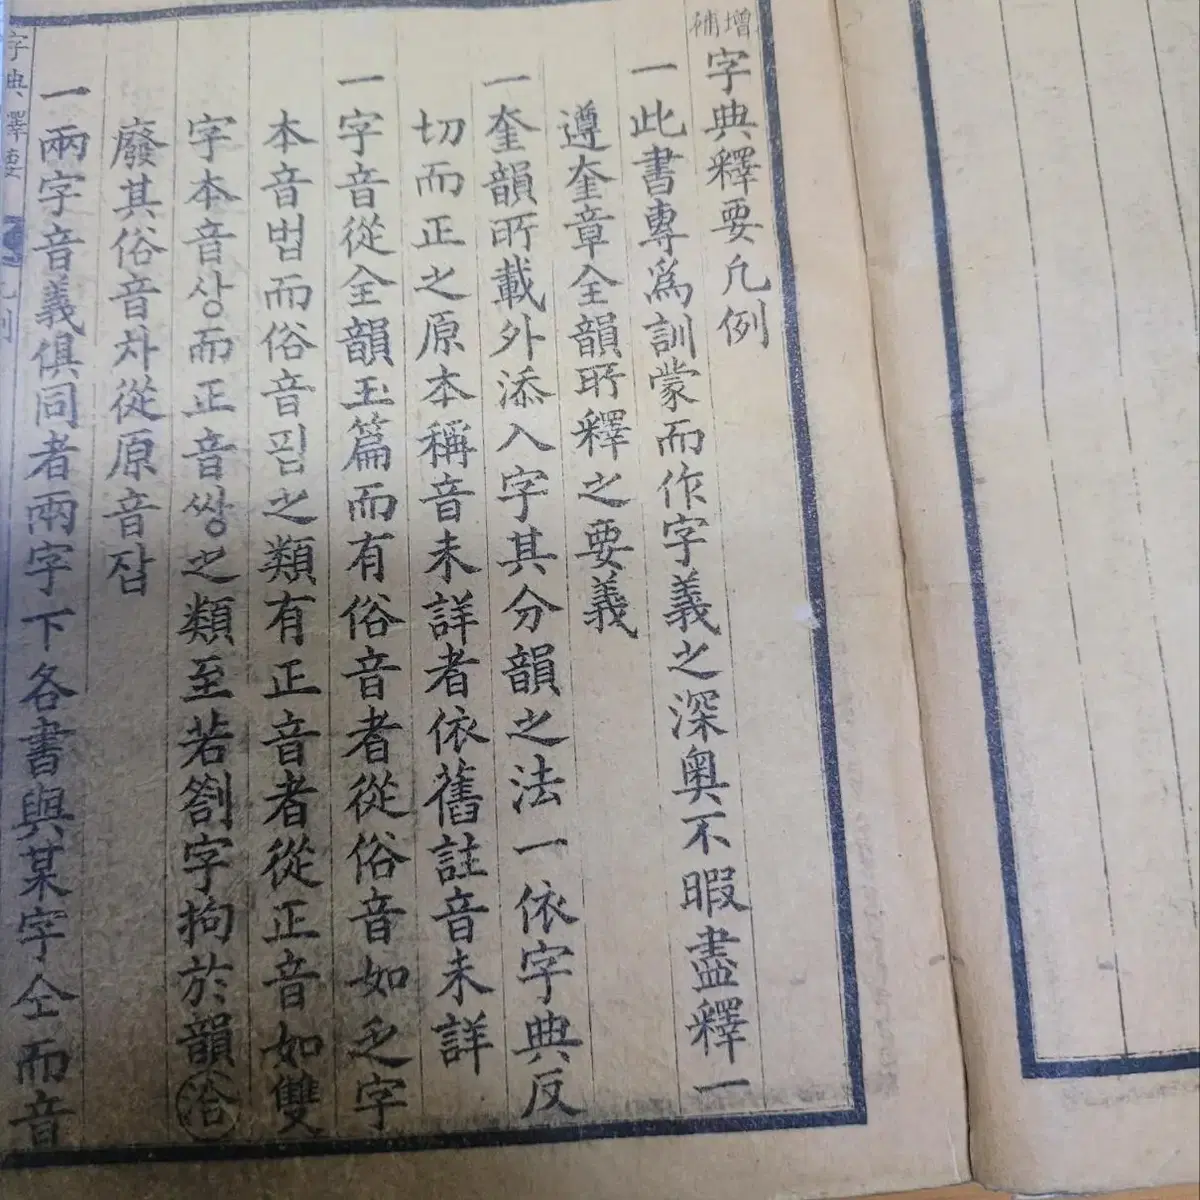 增補
字典釋要凡例
一此書專爲訓蒙而作字義之深奧不暇盡釋一
遵奎章全韻所釋之要義
一奎韻所載外添入字其分韻之法一依字典反
切而正之原本稱音未詳者依舊註音未詳
一字音從全韻玉篇而有俗音者從俗音如乏字
本音법而俗音핍之類有正音者從正音如雙
字本音상而正音쌍之類至若劄字拘於韻洽
廢其俗音차從原音잡
一兩字音義俱同者兩字下各書與某字仝而音
字典釋要